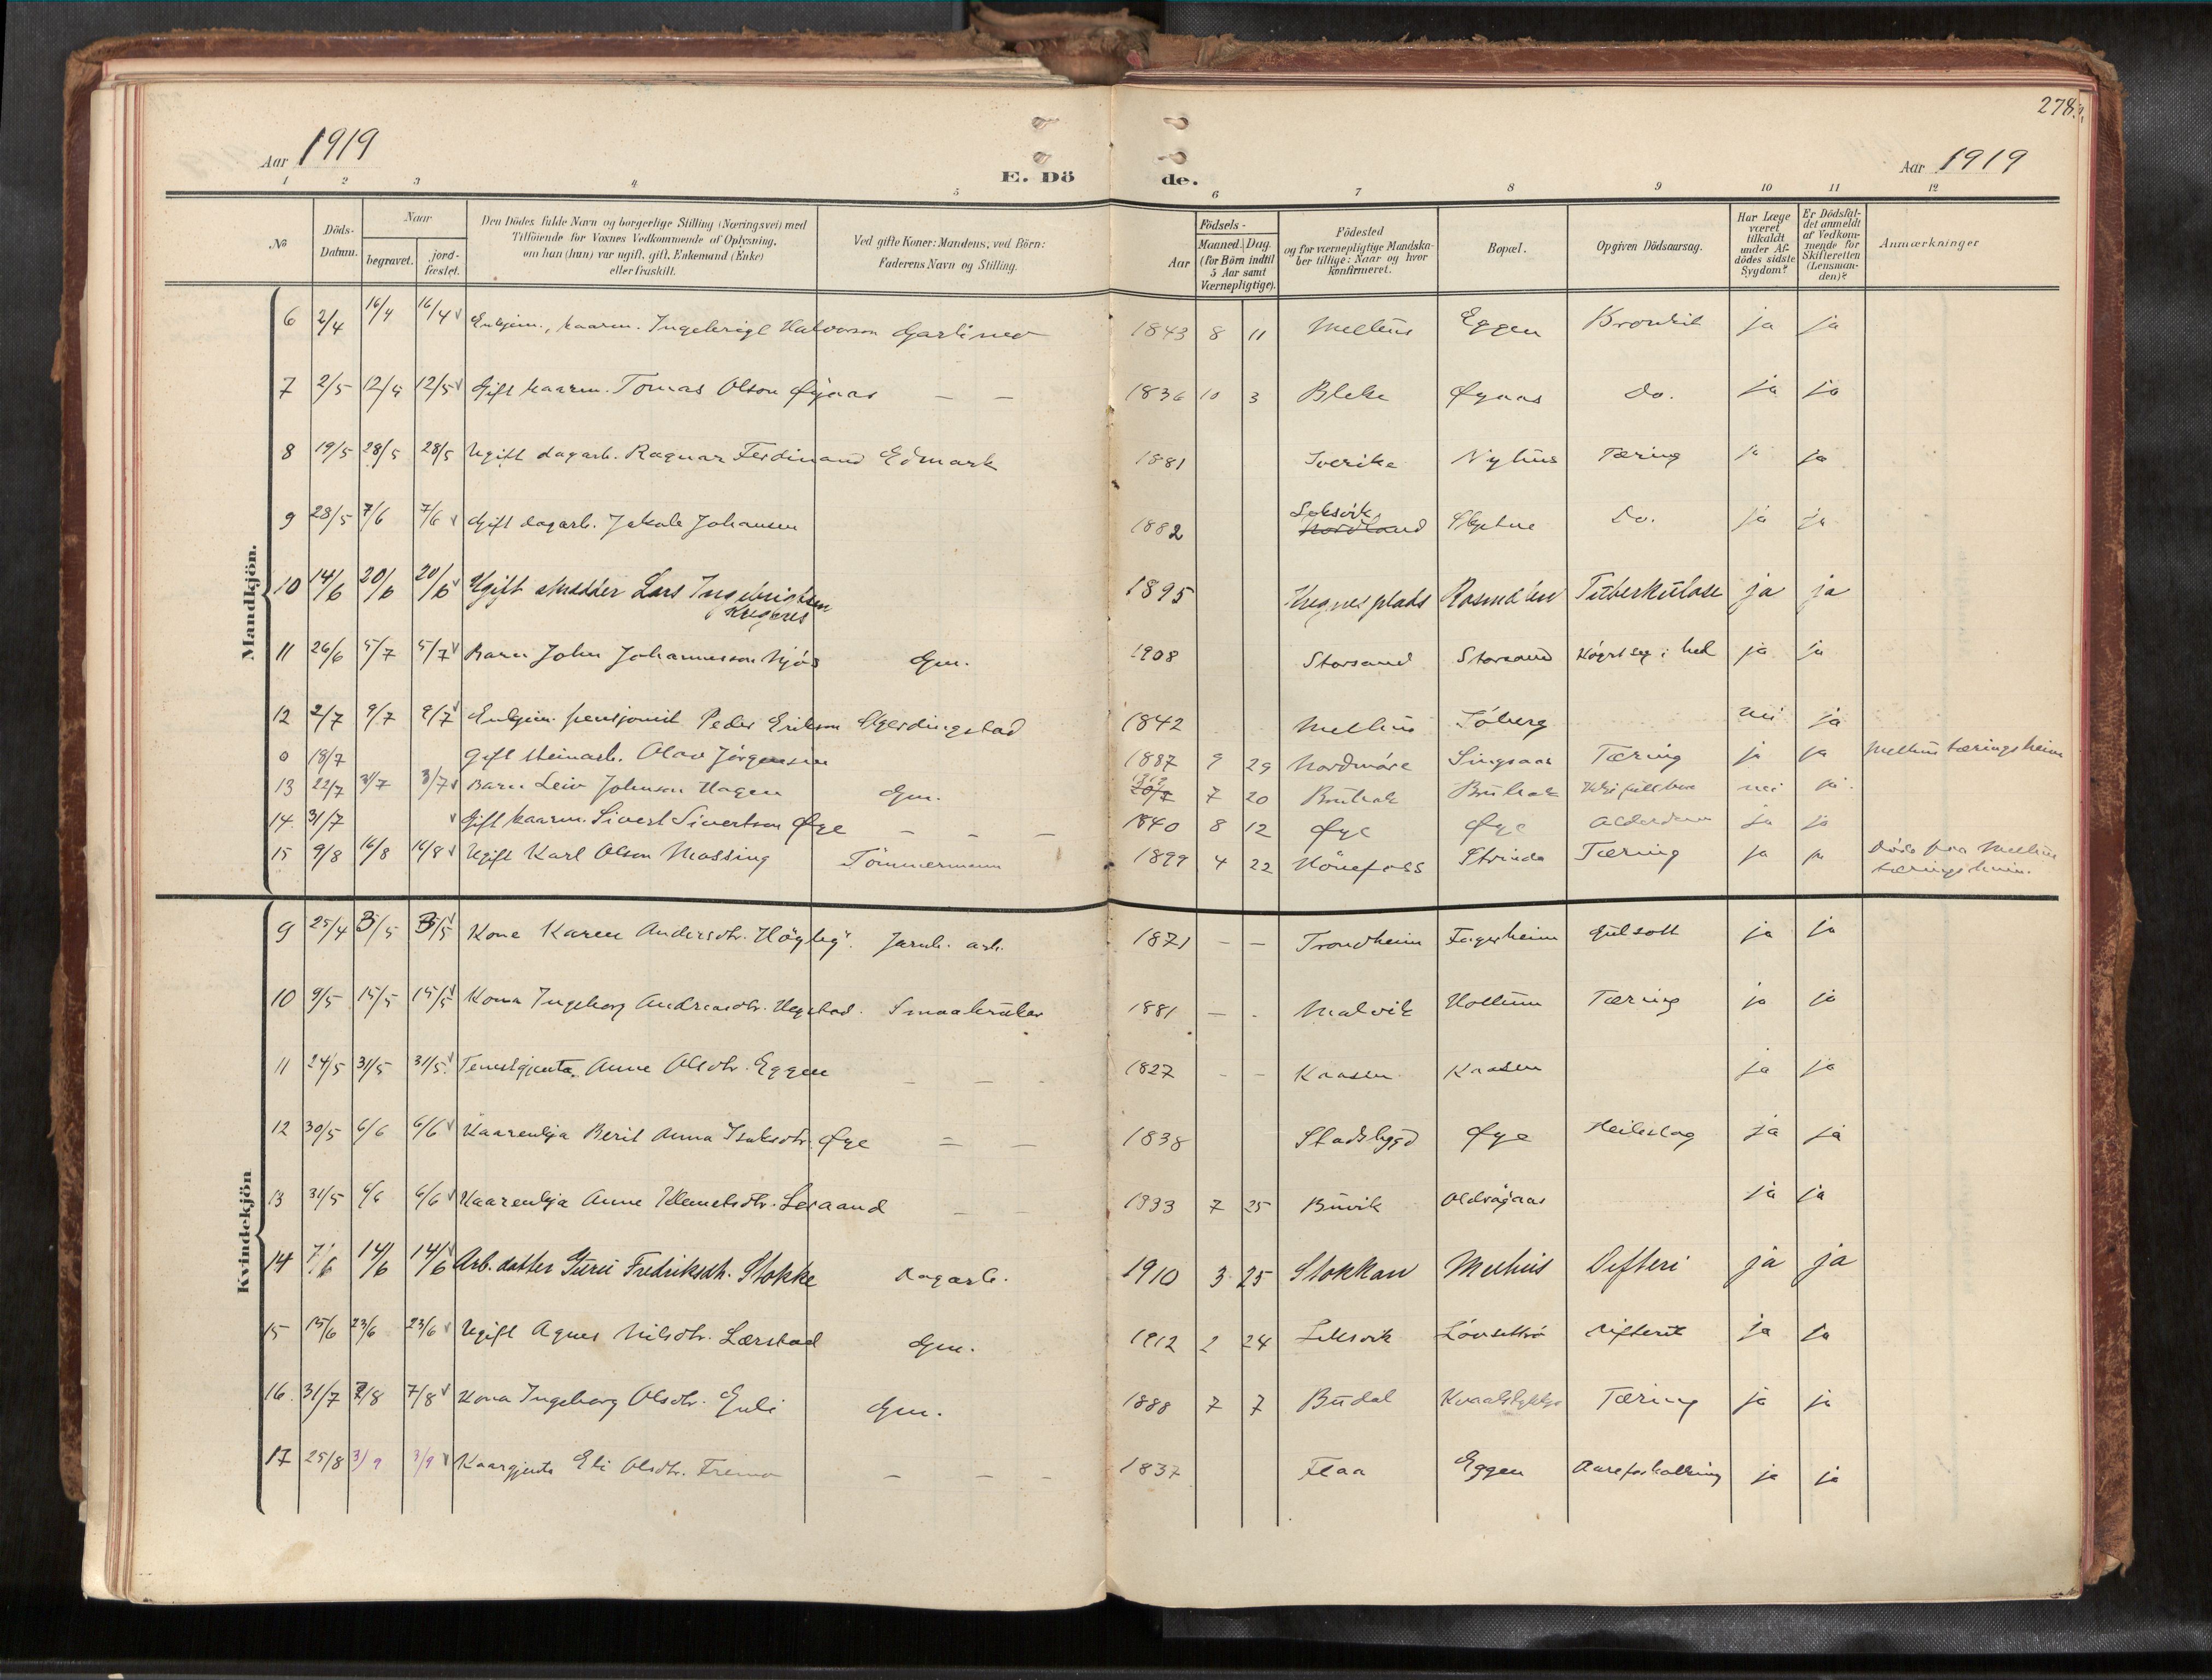 278
Aar 1919
E. Dö
de.
Aar 1919
1 2 3 4 5 6 7 8 9 10 11 12
No
Döds-Datum.
Naar
begravet.
jord-fæstet.
Den Dödes fulde Navn og borgerlige Stilling (Næringsvei) med
Tilföiende for Voxnes Vedkommende af Oplysning,
om han (hun) var ugift, gift, Enkemand (Enke)
eller fraskilt.
Ved gifte Koner: Mandens, ved Börn:
Faderens Navn og Stilling.
Födsels-
Aar
Maaned. Dag.
(for Börn indtil
5 Aar samt
Værnepligtige).
Födested
og for værnepligtige Mandska-
ber tillige: Naar og hvor
konfirmeret.
Bopæl.
Opgiven Dödsaarsag.
Har Læge
været
tilkaldt
under Af-
dödes sidste
Sygdom?
Er Dödsfal-
det anmeldt
af Vedkom-
mende for
Skifteretten
(Lensman-
den)?
Anmærkninger
Mandkjön.
6 2/4 16/4 16/4 Enkjem., kaarm. Ingebrigt Halvorson 1843 8 11 Melhus Eggen Bronkit ja ja
7 2/5 12/5 12/5 Gift kaarm. Tomas Olson Øyaas — — 1836 10 3 Øyaas Do. ja ja
8 19/5 28/5 28/5 Ugift dagarb. Ragnar Ferdinand Edmark 1881 Sverike Nyhus Tæring ja ja
9 28/5 7/6 7/6 Gift dagarb. Jakob Johansen 1882 Leksvik Nordland Do. ja ja
10 14/6 20/6 20/6 Ugift skrædder Lars Ingebrigtsen Kregnes 1895 Kregnesplads Rosmælen Tuberkulose ja ja
11 26/6 5/7 5/7 Barn John Johannesson Njös Gm. 1908 Storsand Storsand ja ja
12 2/7 9/7 9/7 Enkjem. pensjonist Peder Erikson Gjerdingstad 1842 Melhus Söberg nei ja
0 18/7 Gift steinarb. Olav Jörgensen 1887 9 29 Nordmöre Singsaas Tæring ja ja Melhus tæringsheim
13 22/7 31/7 3/7 Barn Leiv Johnson Hagen Gm. 1919 7 20 Bruhak Bruhak nei ja.
14. 31/7 Gift kaarm. Sivert Sivertson Øye — — — 1840 8 12 Øye Øye Alderdom ja ja
15 9/8 16/8 16/8 Ugift Karl Olson Mossing Tömmermann 1899 4 22 Hönefoss Strinda Tæring ja ja Döde paa Melhus tæringsheim.
Kvindekjön
9 25/4 3/5 3/5 Kone Karen Andersdtr. Höglig. Jarnb. arb. 1871 — — Trondheim Fagerheim Gulsott ja ja
10 9/5 15/5 15/5 Kona Ingeborg Andreasdtr. Hegstad. Smaabrukar 1881 — - Malvik Hollum Tæring ja ja
11 24/5 31/5 31/5 Tenestgjenta Anne Olsdtr. Eggen — — - 1827 - - Kaasen Kaasen ja ja
12 30/5 6/6 6/6 Kaarenkja Berit Anna Isaksdtr. Øye — — 1838 Stadsbygd Øye Heileslag ja ja
13 31/5 6/6 6/6 Kaarenkja Anne Klemetsdtr. Lesaand — — 1833 7 25 Buvik ja ja
14 7/6 14/6 14/6 Arb. datter Guri Fredriksdtr. Stokke Dagarb. 1910 3 25 Stokkan Melhus Difteri ja ja
15 15/6 23/6 23/6 Ugift Agnes Nilsdtr. Lærstad Gm. 1912 2 24 Leksvik Lövsettrö Difterit ja ja
16. 31/7 7/8 7/8 Kona Ingeborg Olsdtr. Enli Gm. 1888 7 7 Budal Kvaalslykkja Tæring ja ja
17 25/8 3/9 3/9 Kaargjenta Eli Olsdtr. Fremo — — — 1837 Flaa Eggen Aareforkalkning ja ja